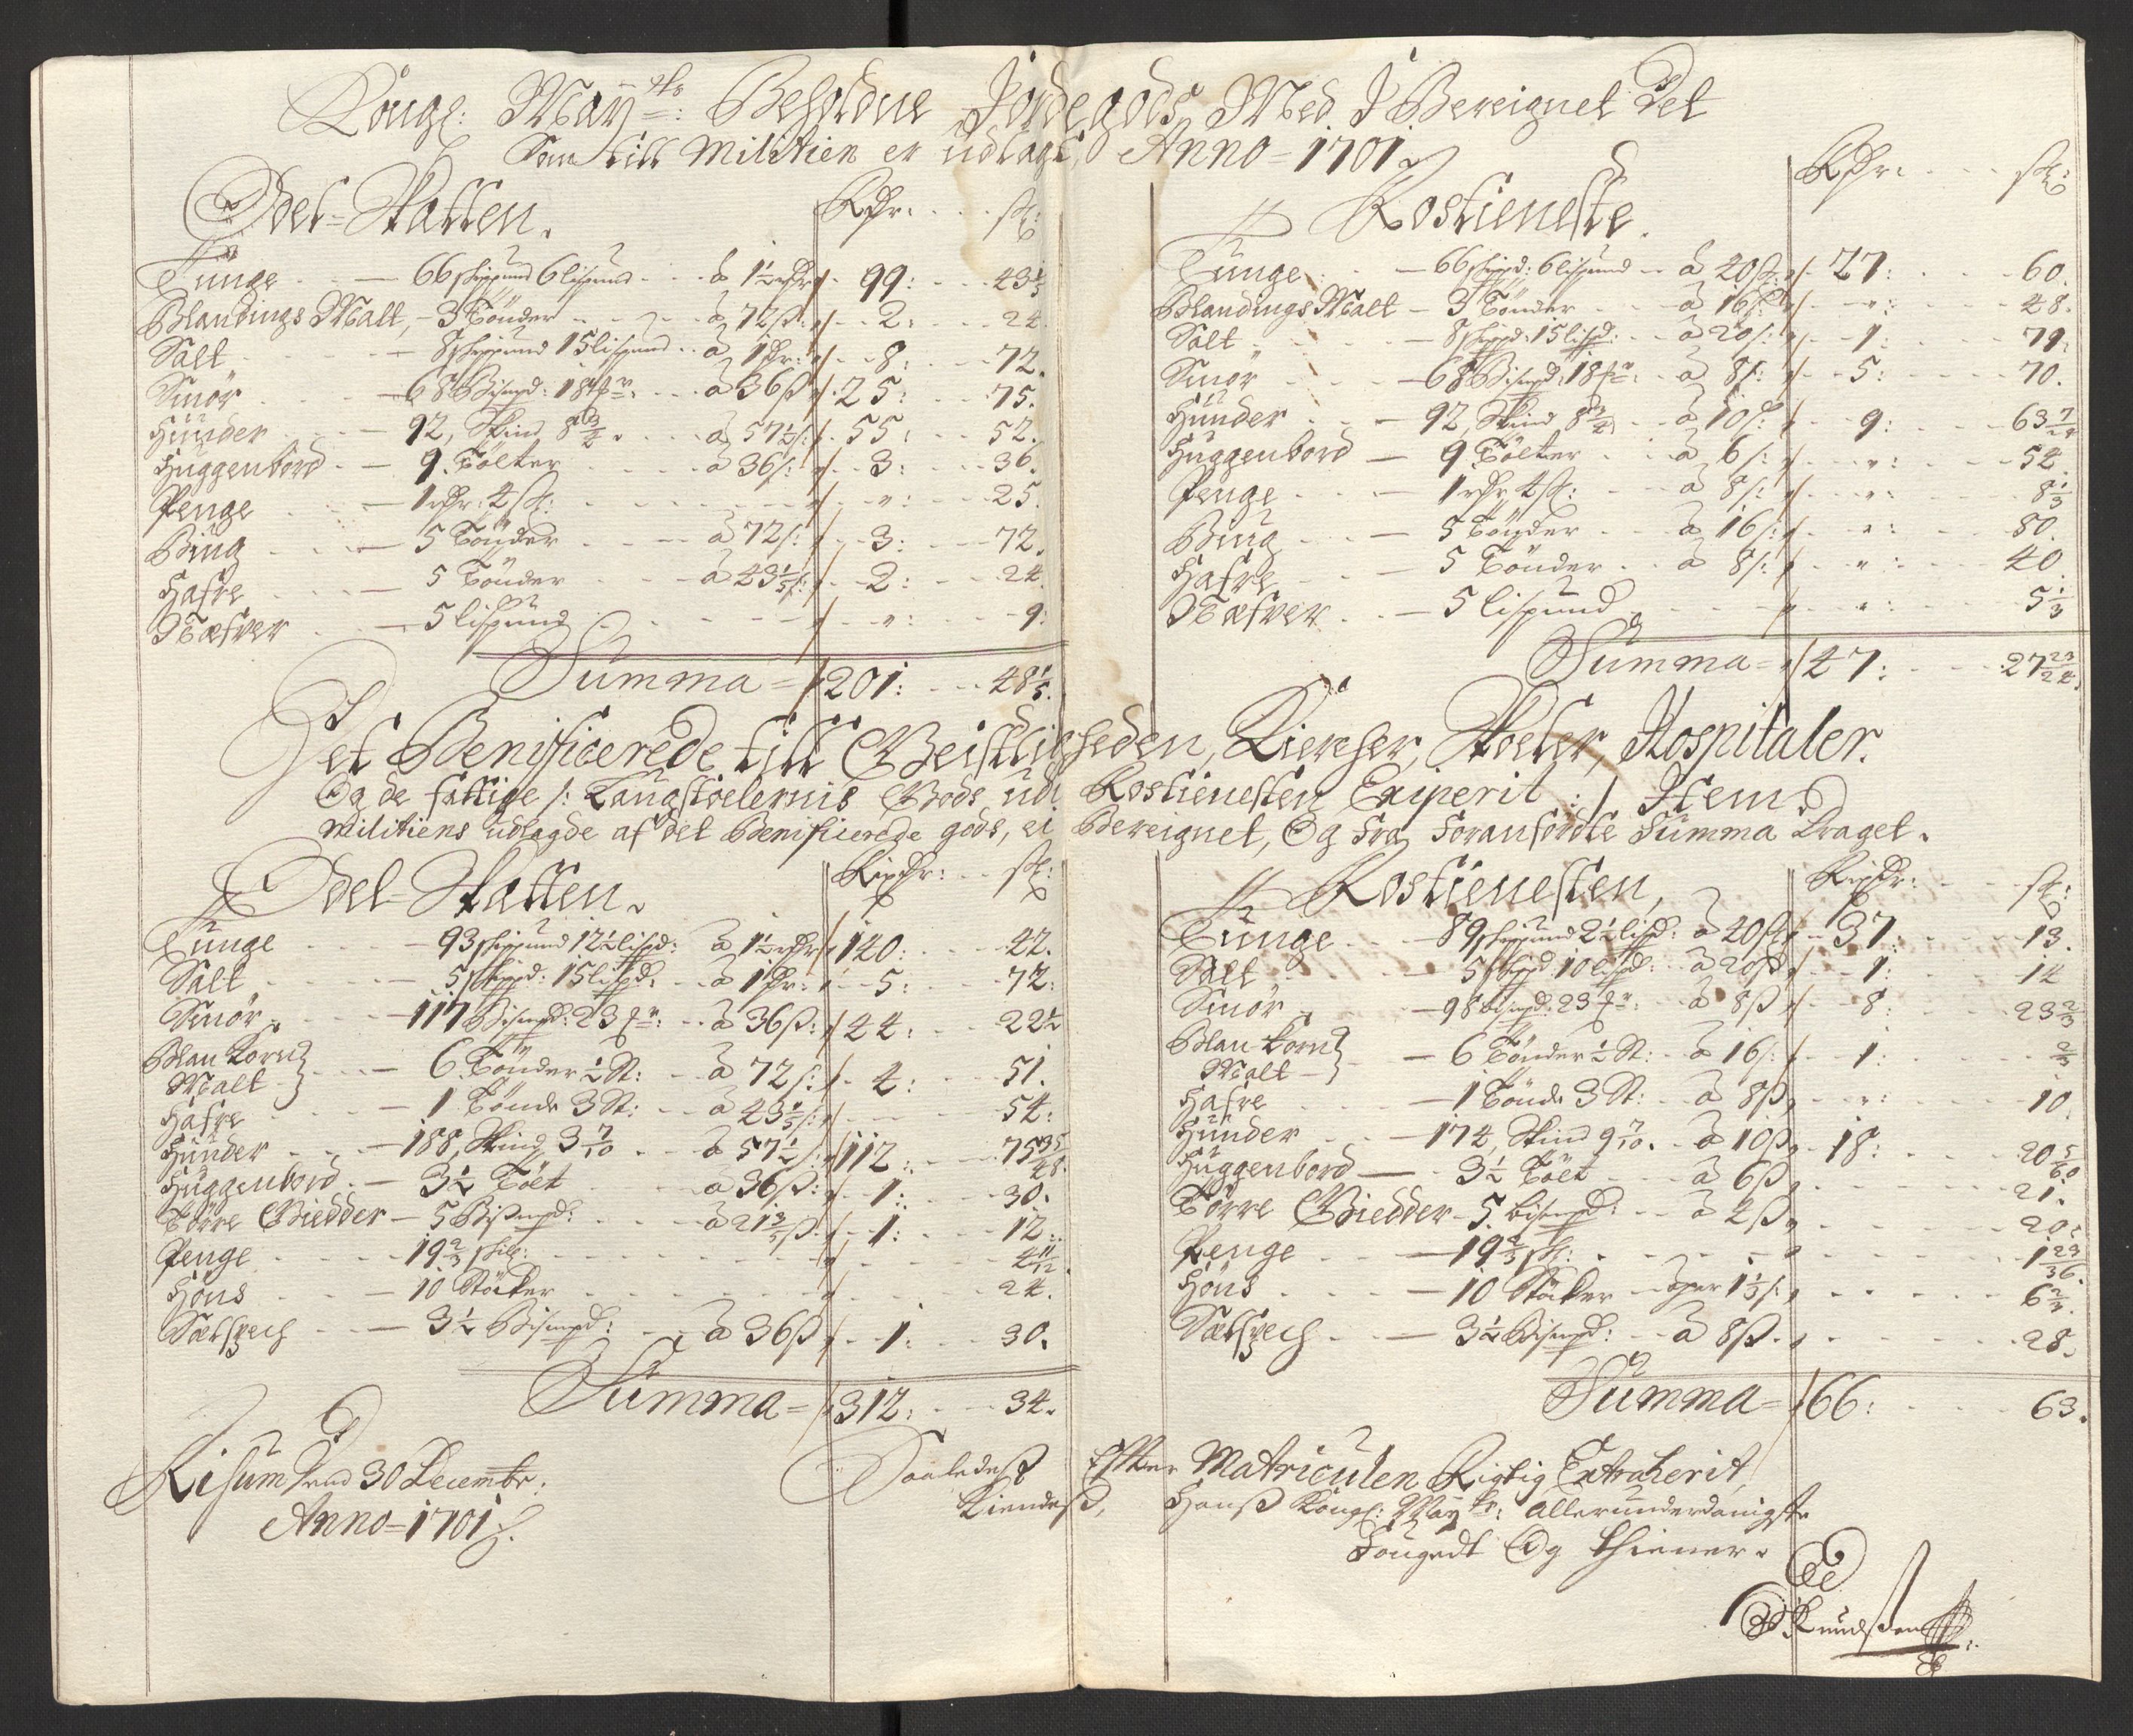 Kongl: Maÿtts: Beholdne Jordegods Med I Bereignet Det
Som till Militien er udlagt, Anno=1701.
Odel=Skatten. Rdr: sk:
Tunge - 66 skippund 6 lispund - â 1½ rdr 99: 43⅕
Blandings Malt, - 3 Tønder - â 72 ß 2: 24.
Salt - 8 skippund 15 lispund - â 1 Rdr: 8: 72.
Smør - 68 Bismpd: 18 mr: - â 36 ß 25: 75.
Hunder - 92, Skind 8¾ - â 57½ ß: 55: 52.
Huggenbord - 9. Tølter - â 36 ß: 3: 36.
Penge - 1 rdr: 4 sk: - „: 25.
Biug - 5 Tønder - â 72 ß: 3: 72.
Hafre - 5 Tønder - â 43⅕ ß: 2: 24.
Næfver - 5 lispund - „: 9:
Summa= 201: 48⅕.
Rostieneste. Rdr: sk:
Tunge - 66 skippd: 6 lispund - â 40 sk: 27: 60.
Blandings Malt - 3 Tønder - â 16 ß „: 48.
Salt - 8 skippd: 15 lispd: - â 20 ß: 1: 79.
Smør - 68 Bismpd: 18 mr: - â 8 ß: 5: 70.
Hunder - 92, Skind 8¾ - â 10 ß: 9: 63 7/24
Huggenbord - 9 Tølter - â 6 ß: „: 54.
Penge - 1 rdr, 4 sk: - â 8 ß: „: 8⅓
Biug - 5 Tønder - â 16 ß: „: 80.
Hafre - 5 Tønder - â 8 ß: „: 40
Næfver - 5 lispund - „: 5⅓
Summa= 47: 27 23/24.
Det Benificerede till Geistligheden, Kiercher, Skoeler, Hospitaler.
Og de fattige /: Laugstoelernis Gods udi Rostienesten Exiperit :/ Item
Militiens udlagde af det Benificerede gods, ei Bereignet, Og fra foranførdte Summa Draget.
Odel-Skatten. Rixdr: sk:
Tunge - 93 skippund 12½ lispd: â 1½ rdr 140: 42.
Salt - 5 skippd: 15 lispd: - â 1 Rdr: 5: 72.
Smør - 117 Bismpd: 23 mr: - â 36 ß: 44: 22½
Blan korn
Malt } - 6 Tønder ½ St: - â 72 ß: 4: 51.
Hafre - 1 Tønde 3 St: - â 43⅕ ß: 54:
Hunder - 188, Skind 3 7/10 - â 57½ ß: 112: 75 35/48.
Huggenbord - 3½ Tølt - â 36 ß: 1: 30.
Tørre Giedder - 5 Bismpd: - â 21⅗ ß 1: 12.
Penge - 19⅔ skil: - 4 11/12.
Høns - 10 Støcker - 24.
Sælspech - 3½ Bismpd: - â 36 ß 1: 30.
Summa= 312: 34.
Rostienesten, Rixdr: sk:
Tunge - 89 skippund 2½ lispd: â 40 sk 37: 13.
Salt - 5 skippd 10 lispd: - â 20 ß 1: 14
Smør - 98 bismpd: 23 mr: - â 8 ß 8: 23⅔
Blan-korn
Malt } - 6 Tønder ½ St: - â 16 ß: 1: ⅔
Hafre - 1 Tønde 3 St: - â 8 ß „: 10.
Hunder - 174, Skind 9 7/10. - â 10 ß 18: 20 5/60
Huggenbord - 3½ Tølt - â 6 ß 21.
Tørre Giedder - 5 bismpd: - â 4 ß 20.
Penge - 19⅔ sk: 1 23/36.
Høns - 10 Støcker - â per 1⅓ ß: 6⅔.
Sælspech - 3½ Bismpd: - â 8 ß. 28.
Summa= 66: 63.
Risum dend 30 Decembr:
Anno=1701.
Saaledeß Efter Matriculen Rigtig Extraherit,
Kiendeß, Hanß Kongl: Maytts: Allerunderdanigste
Fougedt Og thiener.
Knudssen